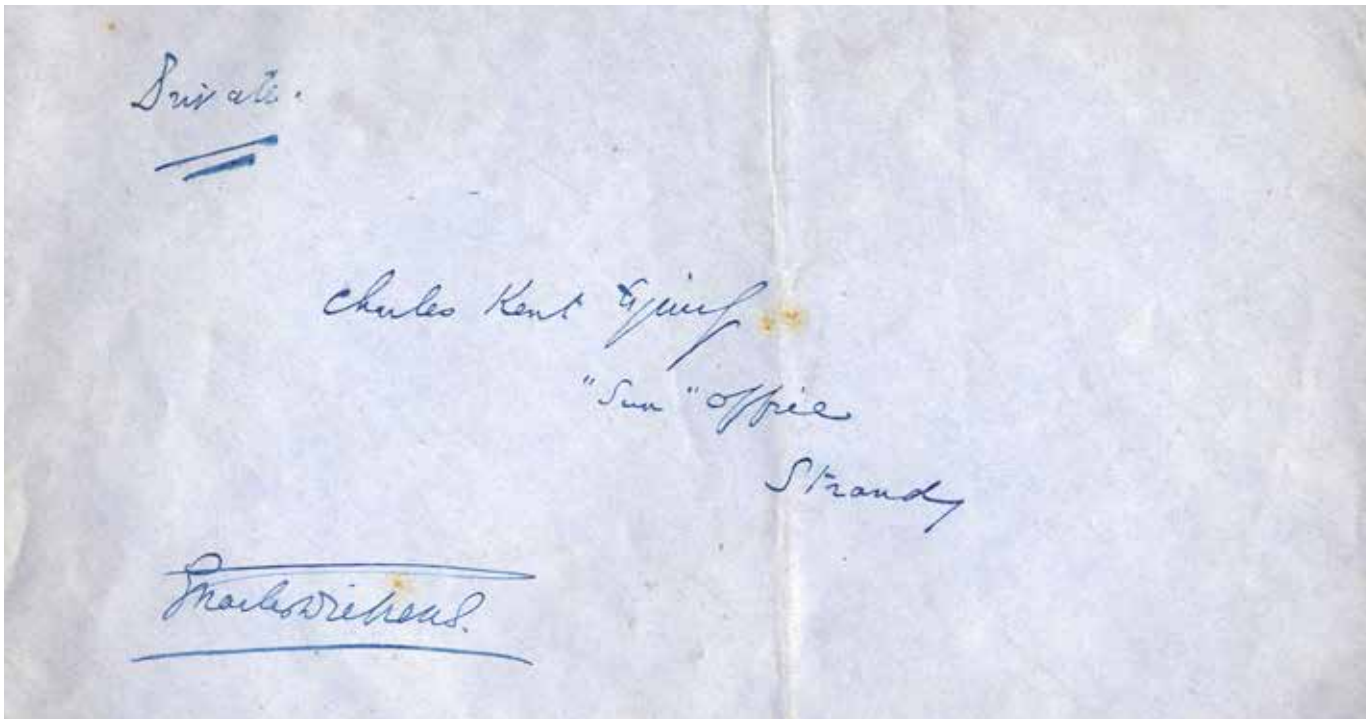 Private.
Charles Kent Esquire
"Sun" office
Strand
Charles Dickens.